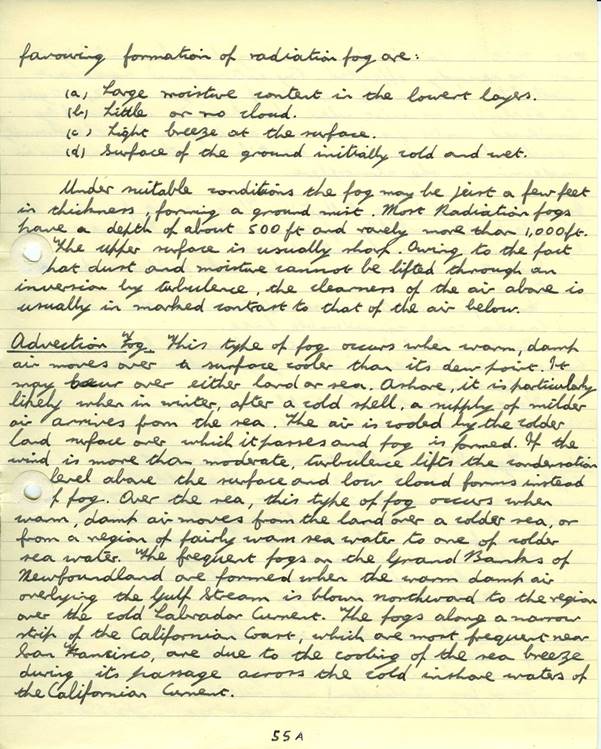 favouring formation of radiation fog are:
(a) Large moisture content in the lowest layers.
(b) Little or no cloud.
(c) Light breeze at the surface.
(d) Surface of the ground initially cold and wet.
Under suitable conditions the fog may be just a few feet
in thickness, forming a ground mist. Most Radiation fogs
have a depth of about 500 ft and rarely more than 1,000 ft.
The upper surface is usually sharp. Owing to the fact
hat dust and moisture cannot be lifted through an
inversion by turbulence, the clearness of the air above is
usually in marked contrast to that of the air below.
Advection Fog. This type of fog occurs when warm, damp
air moves over a surface cooler than its dew point. It
may occur over either land or sea. Ashore, it is particularly
likely when in winter, after a cold spell, a supply of milder
air arrives from the sea. The air is cooled by the colder
land surface over which it passes and fog is formed. If the
wind is more than moderate, turbulence lifts the condensation
level above the surface and low cloud forms instead
f fog. Over the sea, this type of fog occurs when
warm, damp air moves from the land over a colder sea, or
from a region of fairly warm sea water to one of colder
sea water. The frequent fogs on the Grand Banks of
Newfoundland are formed when the warm damp air
overlying the Gulf Stream is blown northward to the region
over the cold Labrador Current. The fogs along a narrow
strip of the Californian Coast, which are most frequent near
San Francisco, are due to the cooling of the sea breeze
during its passage across the cold inshore waters of
the Californian Current.
55A